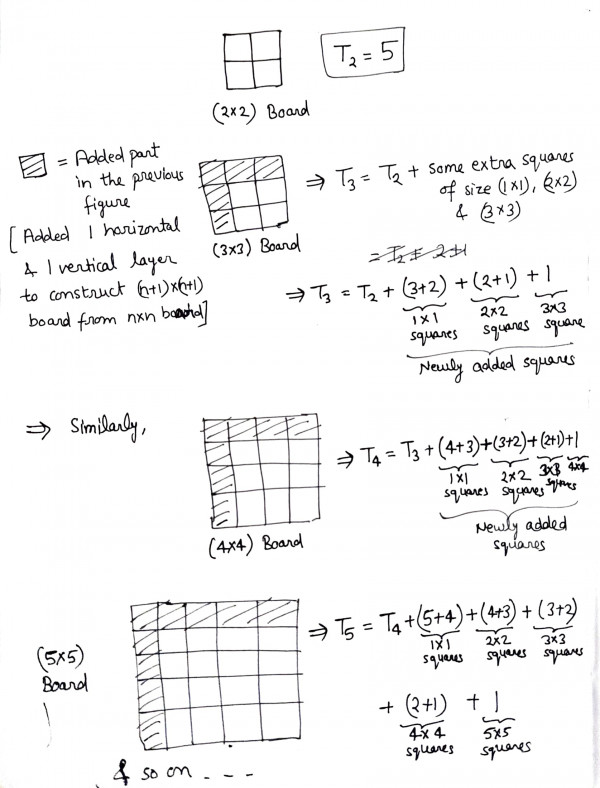 T₂ = 5
(2×2) Board
= Added part
in the previous
figure
[Added 1 horizontal
& 1 vertical layer
to construct (n+1)×(n+1)
board from n×n board]
(3×3) Board
⇒ T₃ = T₂ + some extra squares
of size (1×1), (2×2)
& (3×3)
⇒ T₃ = T₂ + (3+2) + (2+1) + 1
1×1 squares 2×2 squares 3×3 square
Newly added squares
⇒ Similarly,
(4×4) Board
⇒ T₄ = T₃ + (4+3) + (3+2) + (2+1) + 1
1×1 squares 2×2 squares 3×3 squares 4×4
Newly added
squares
(5×5)
Board
⇒ T₅ = T₄ + (5+4) + (4+3) + (3+2)
1×1 squares 2×2 squares 3×3 squares
+ (2+1) + 1
4×4 squares 5×5 squares
& so on - - - -